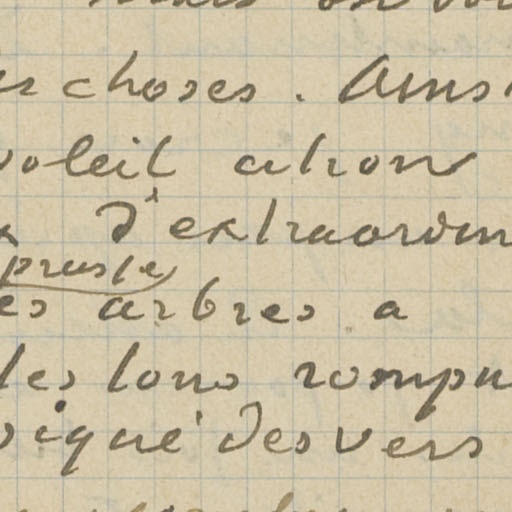 choses. Ains
soleil citron
d'extraordin
es arbres a
les tons rompu
piqué des vers